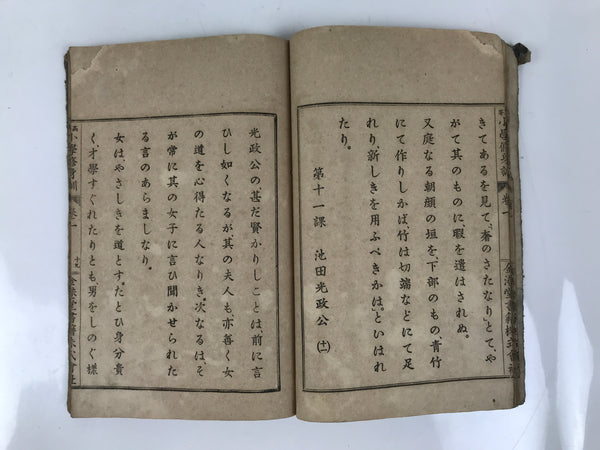 きてあるを見て、「奢のさたなり」とて、や
がて其のものに暇を遣はされぬ。
又庭なる朝顔の垣を、下部のもの、青竹
にて作りしかば、「竹は切端などにて足
れり、新しきを用ふべきかは。」といはれ
たり。
第十一課 池田光政公 (十二)
光政公の、甚だ賢かりしことは、前に言
ひし如くなるが、其の夫人も亦善く女
の道を心得たる人なりき。次なるは、そ
が常に其の女子に言ひ聞かせられた
る言のあらましなり。
女は、やさしきを道とす。たとひ身分貴
く、才學すぐれたりとも、男をしのぐ樣
小學修身訓 卷一